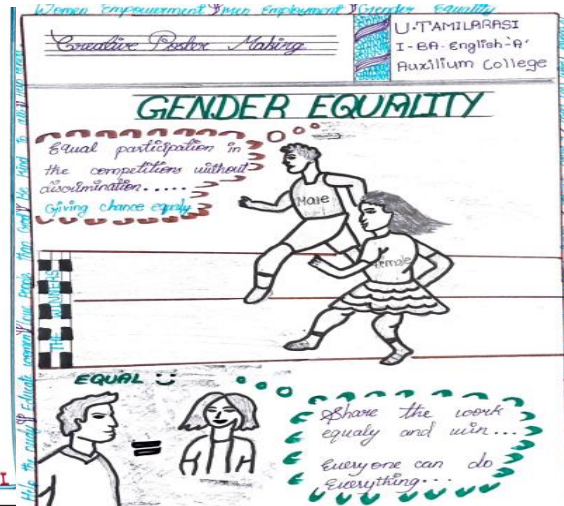 Women Empowerment Men Employment Gender Equality
Creative Poster Making
U.TAMILARASI
I-BA.English-'A'
Auxilium College
GENDER EQUALITY
Equal participation in
the competitions without
discrimination.....
Giving chance equaly
Male
Female
THE WINNERS
EQUAL
=
Share the work
equaly and win...
Everyone can do
Everything...
Help the needy Educate women Love people than God Be kind to all